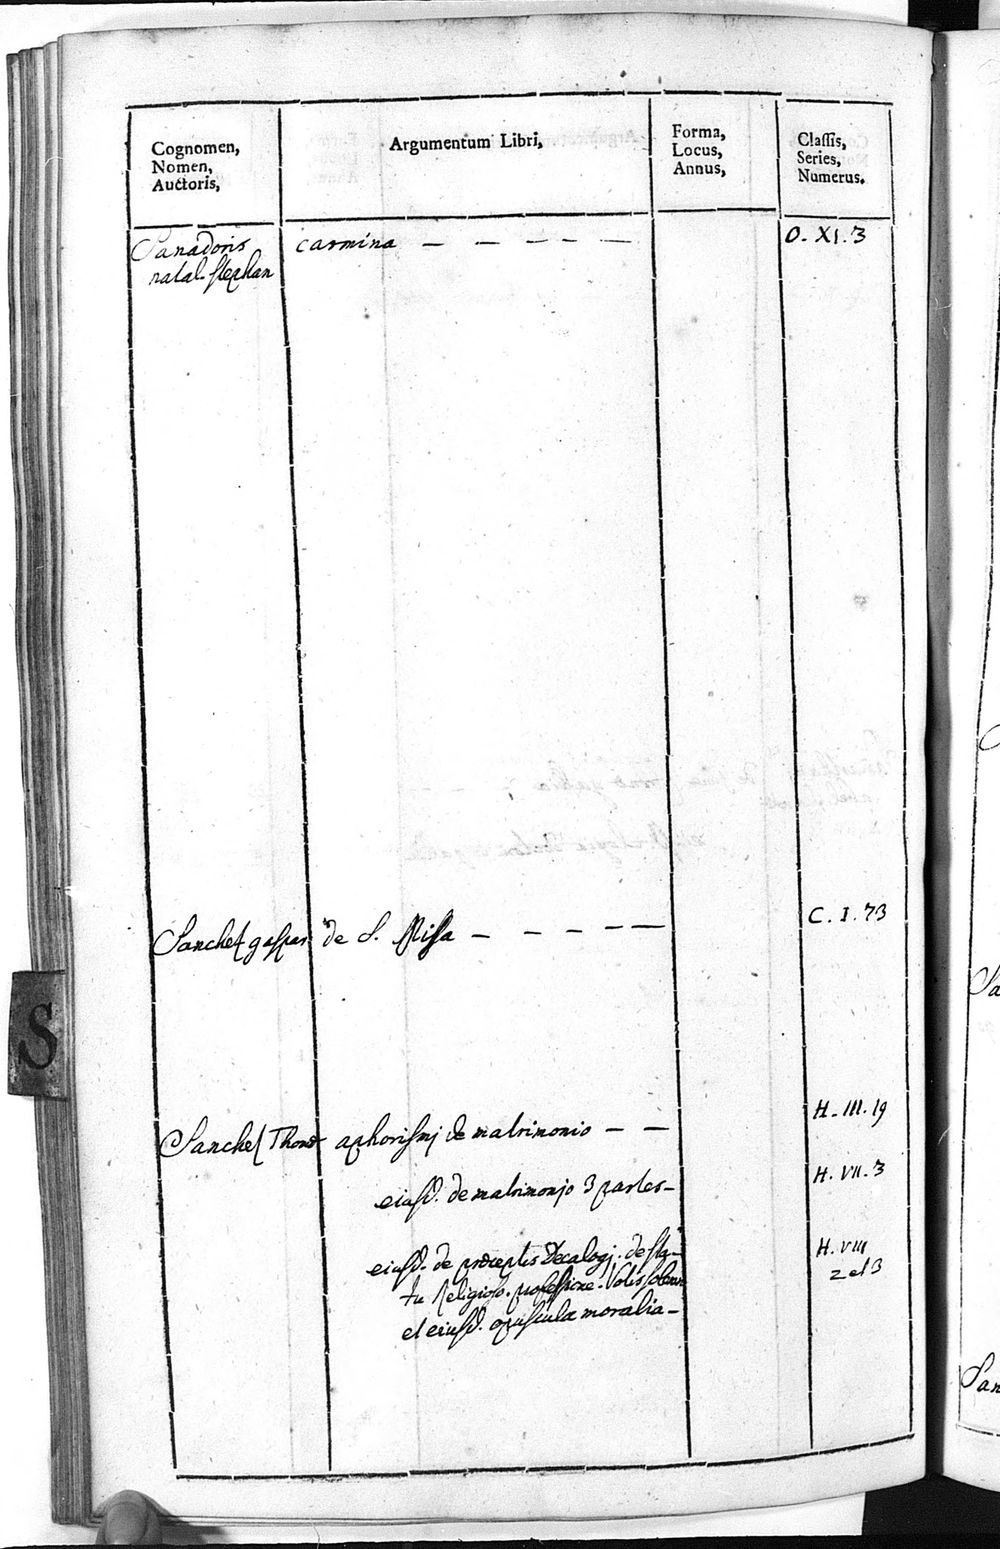 Cognomen,
Nomen,
Auctoris,
Argumentum Libri,
Forma,
Locus,
Annus,
Classis,
Series,
Numerus.
Sanadoris carmina — — — — — O. XI. 3
natal. stephan
Sanchez gaspar de S. Missa — — — — — C. I. 73
Sanchez Thom aphorismj de matrimonio — — H. III. 19
eiusd. de matrimonjo 3 partes — H. VII. 3
eiusd. de præceptis Decalogj. de sta- H. VIII
tu Religioso. professione. Votis solemn 2 et 3
et eiusd. opuscula moralia —
S